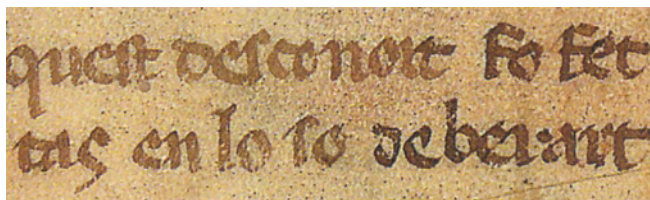 quest desconort fo fet
tas en lo so de berart